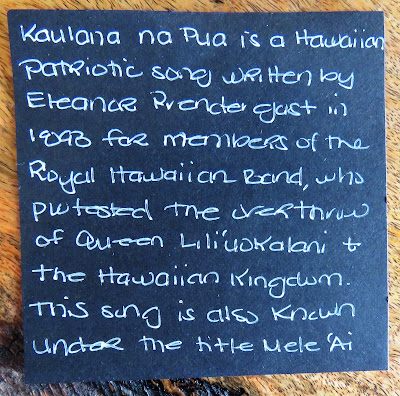 Kaulana na Pua is a Hawaiian
patriotic song written by
Eleanor Prendergast in
1893 for members of the
Royal Hawaiian Band, who
protested the overthrow
of Queen Lili'uokalani &
the Hawaiian Kingdom.
This song is also known
under the title Mele 'Ai